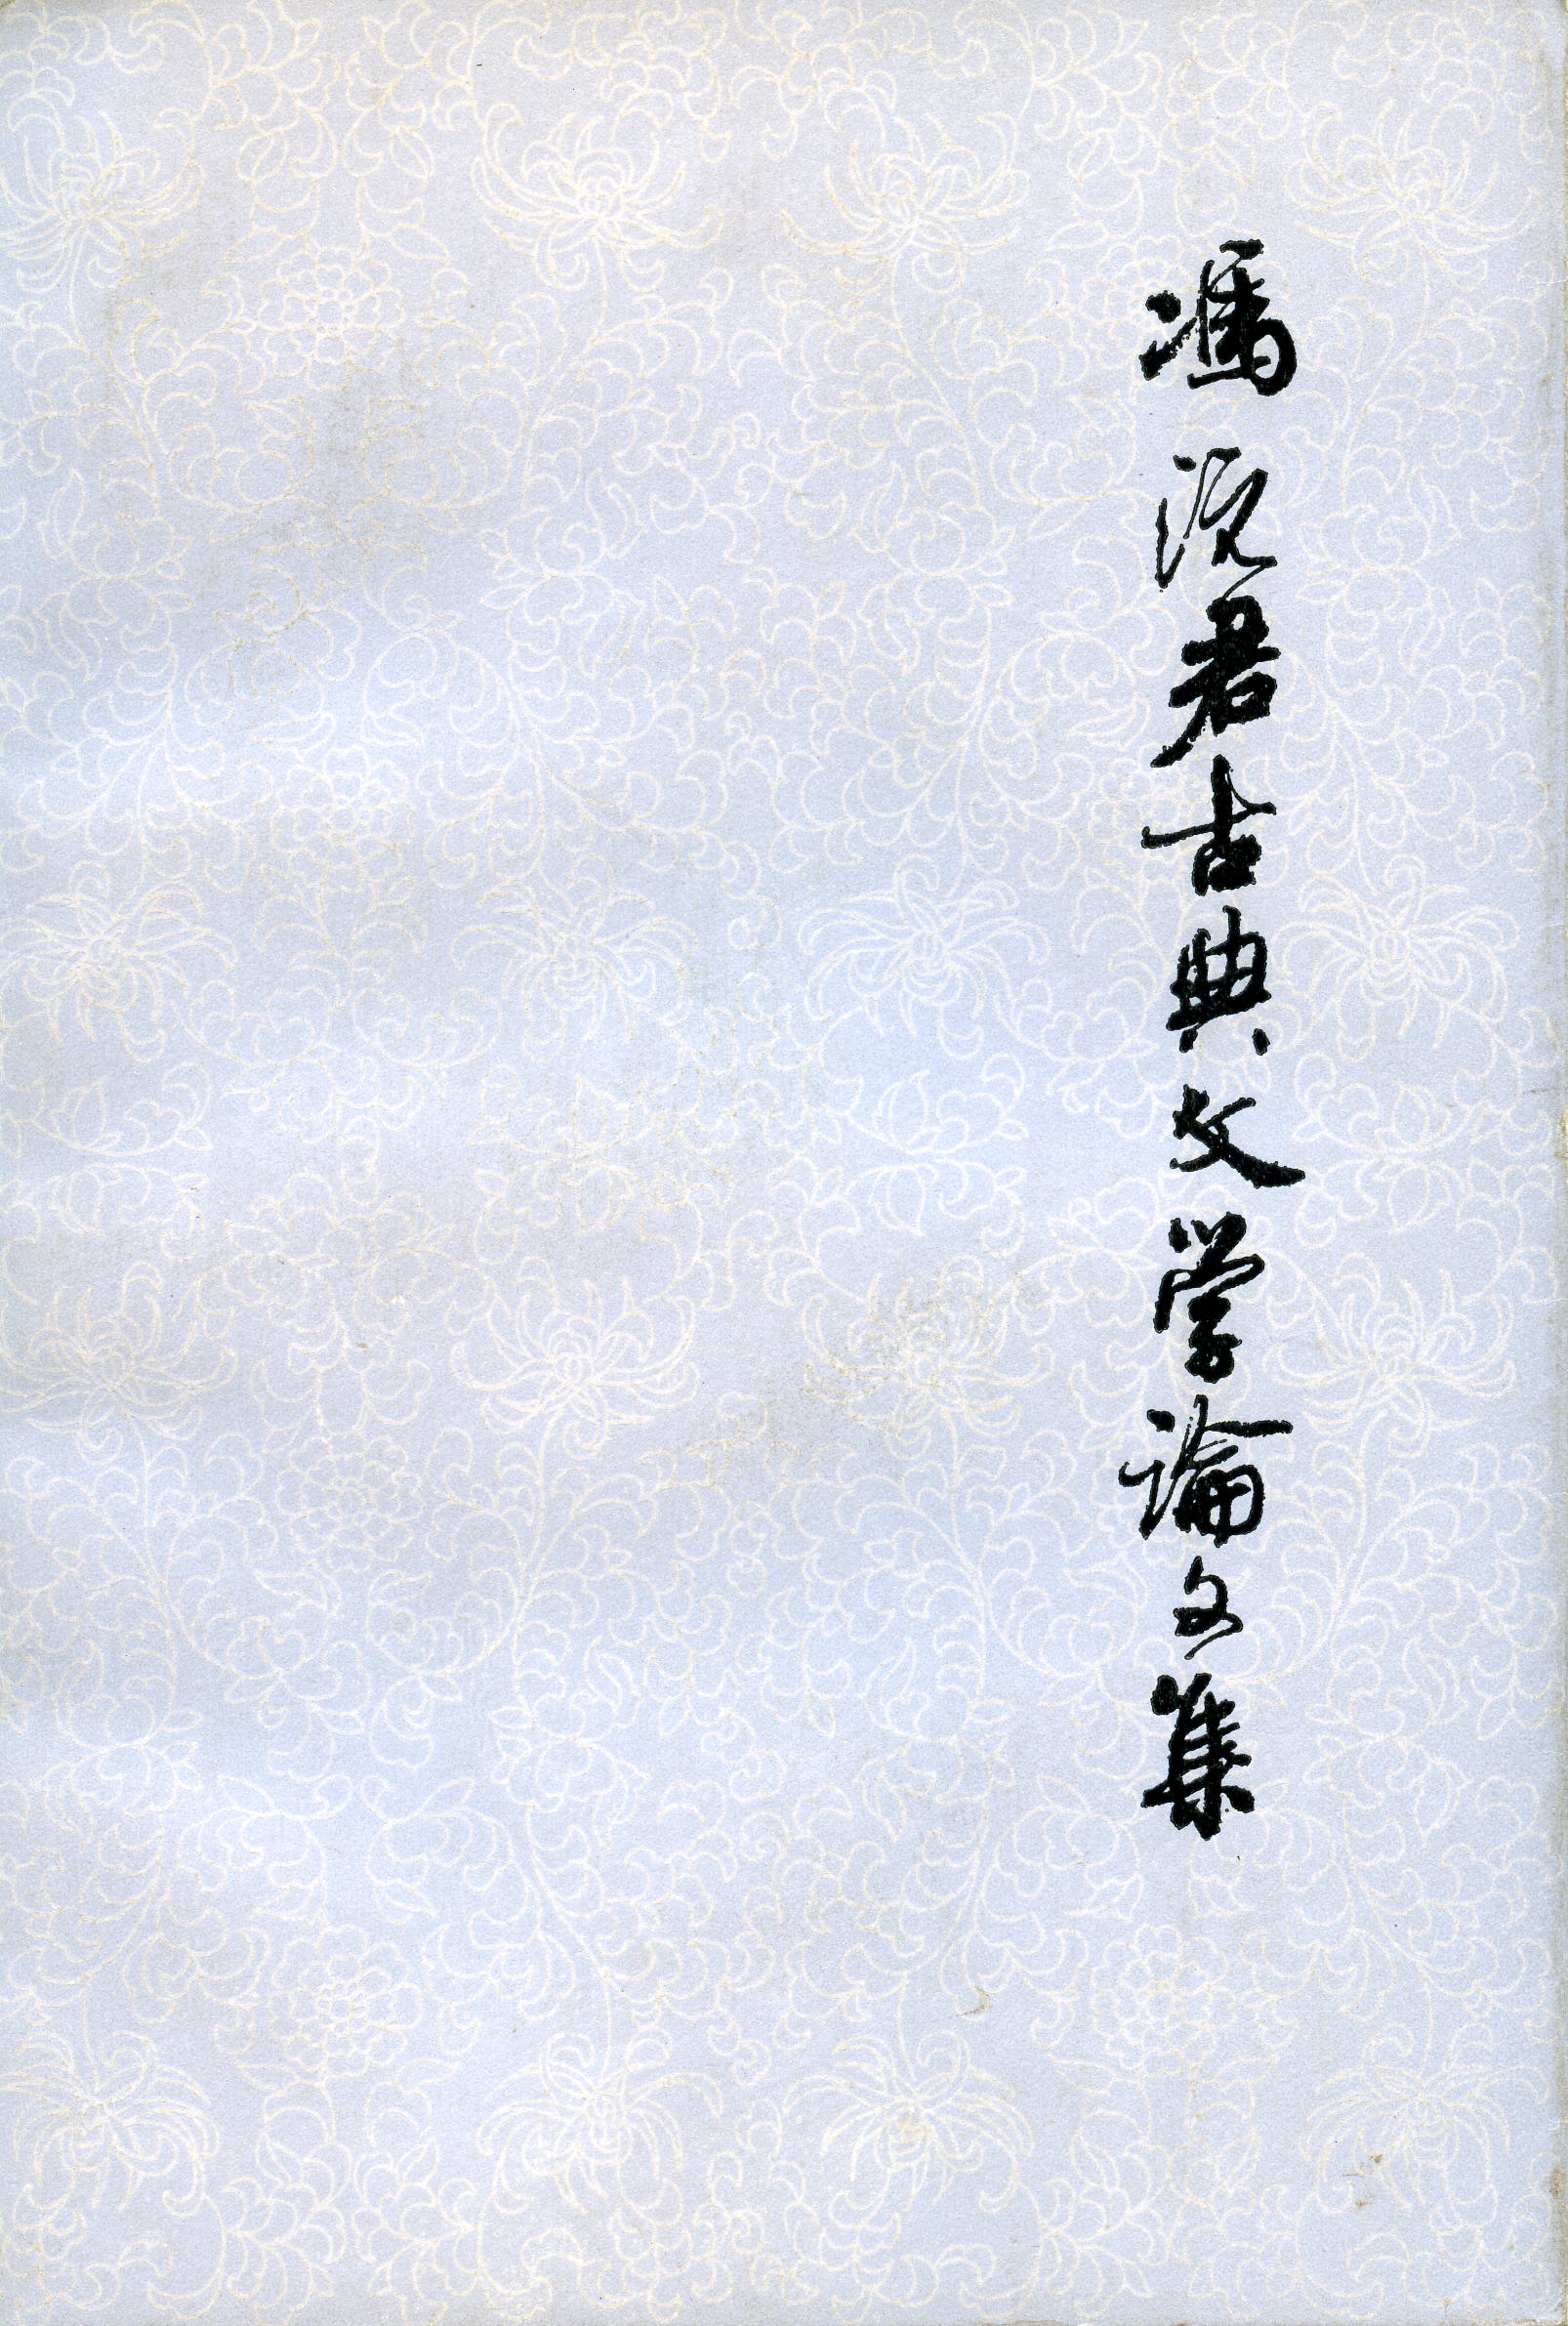 馮沅君古典文学論文集